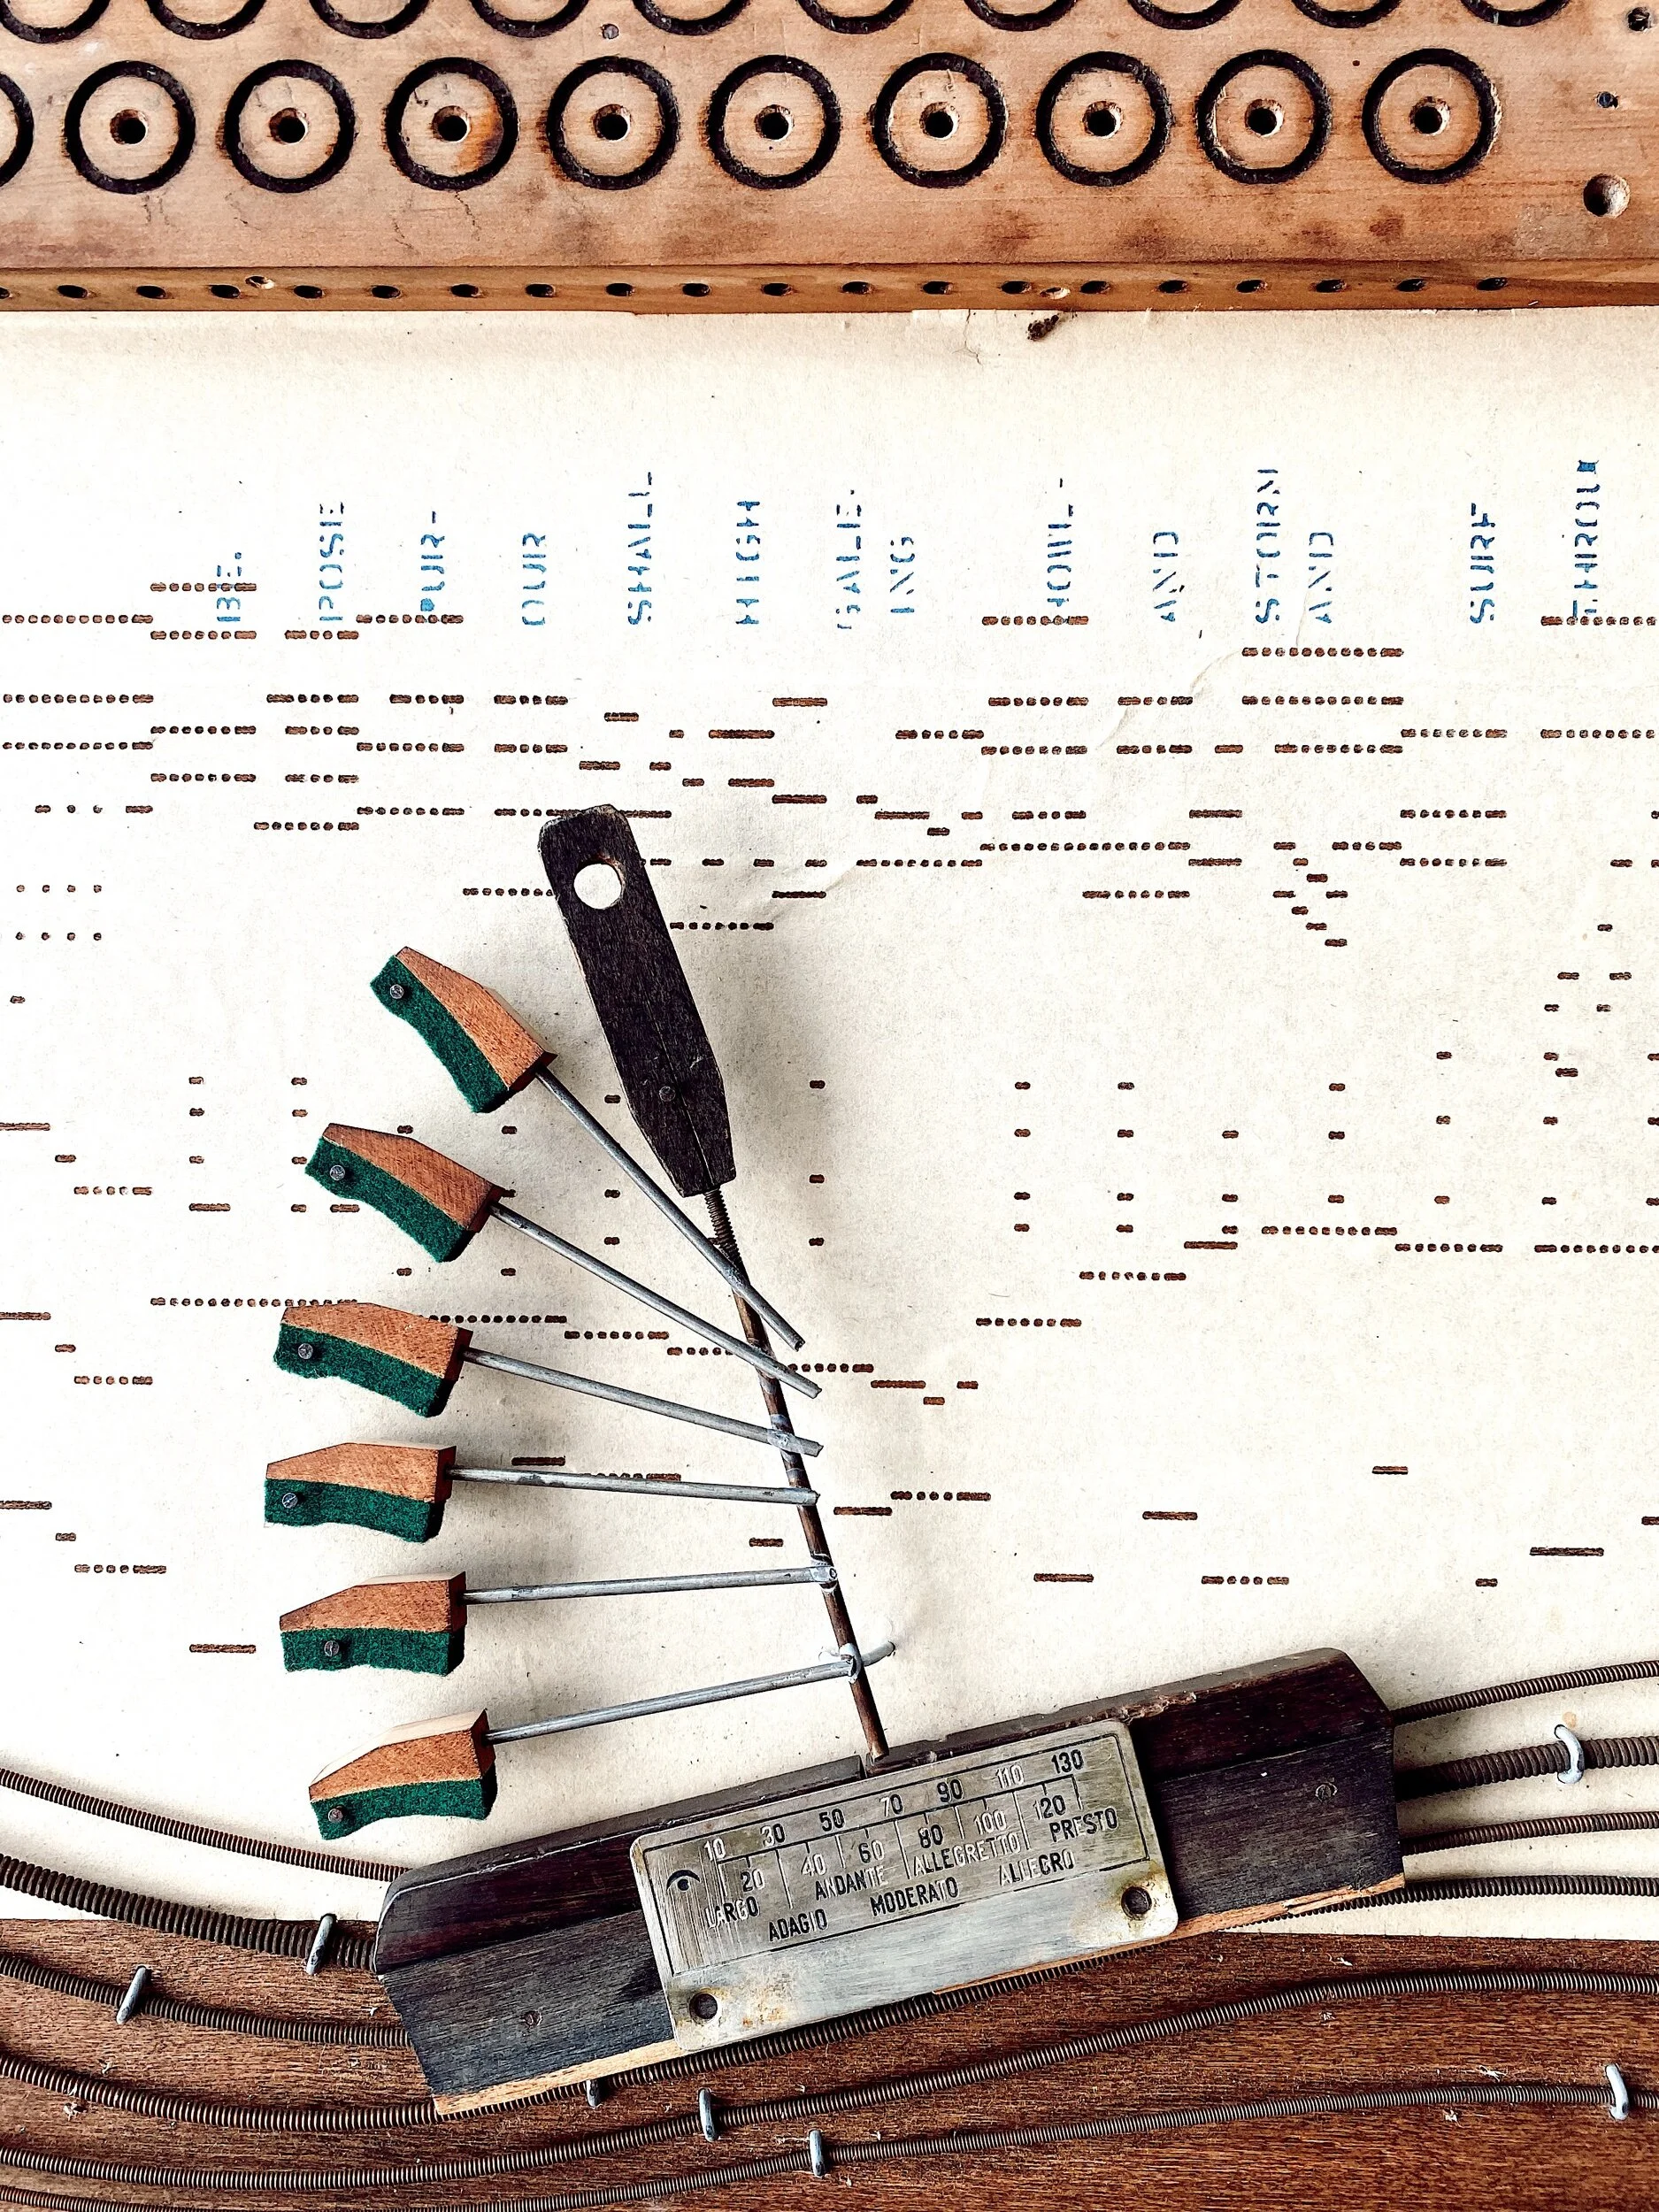 BE.
POSE
PUR-
OUR
SHALL
HIGH
GALE.
ING
HOWL-
AND
STORM
AND
SURF
10 30 50 70 90 110 130
20 40 60 80 100 120
LARGO ANDANTE ALLEGRETTO PRESTO
ADAGIO MODERATO ALLEGRO